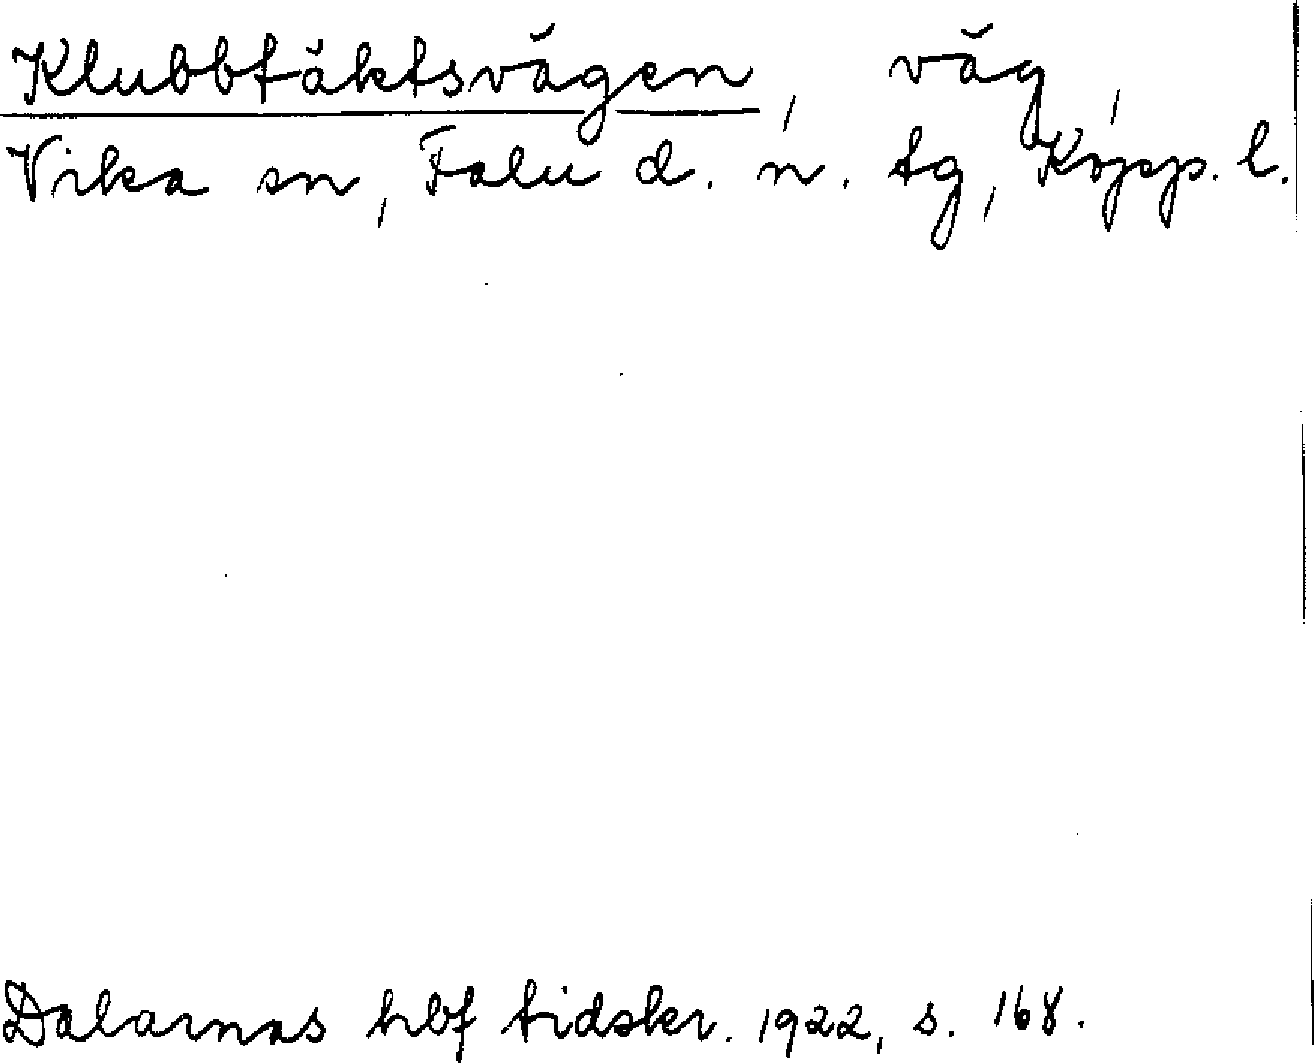 Klubbtäktsvägen, väg,
Vika sn, Falu d. n. tg, Kopp. l.
Dalarnas hbf tidskr. 1922, s. 168.